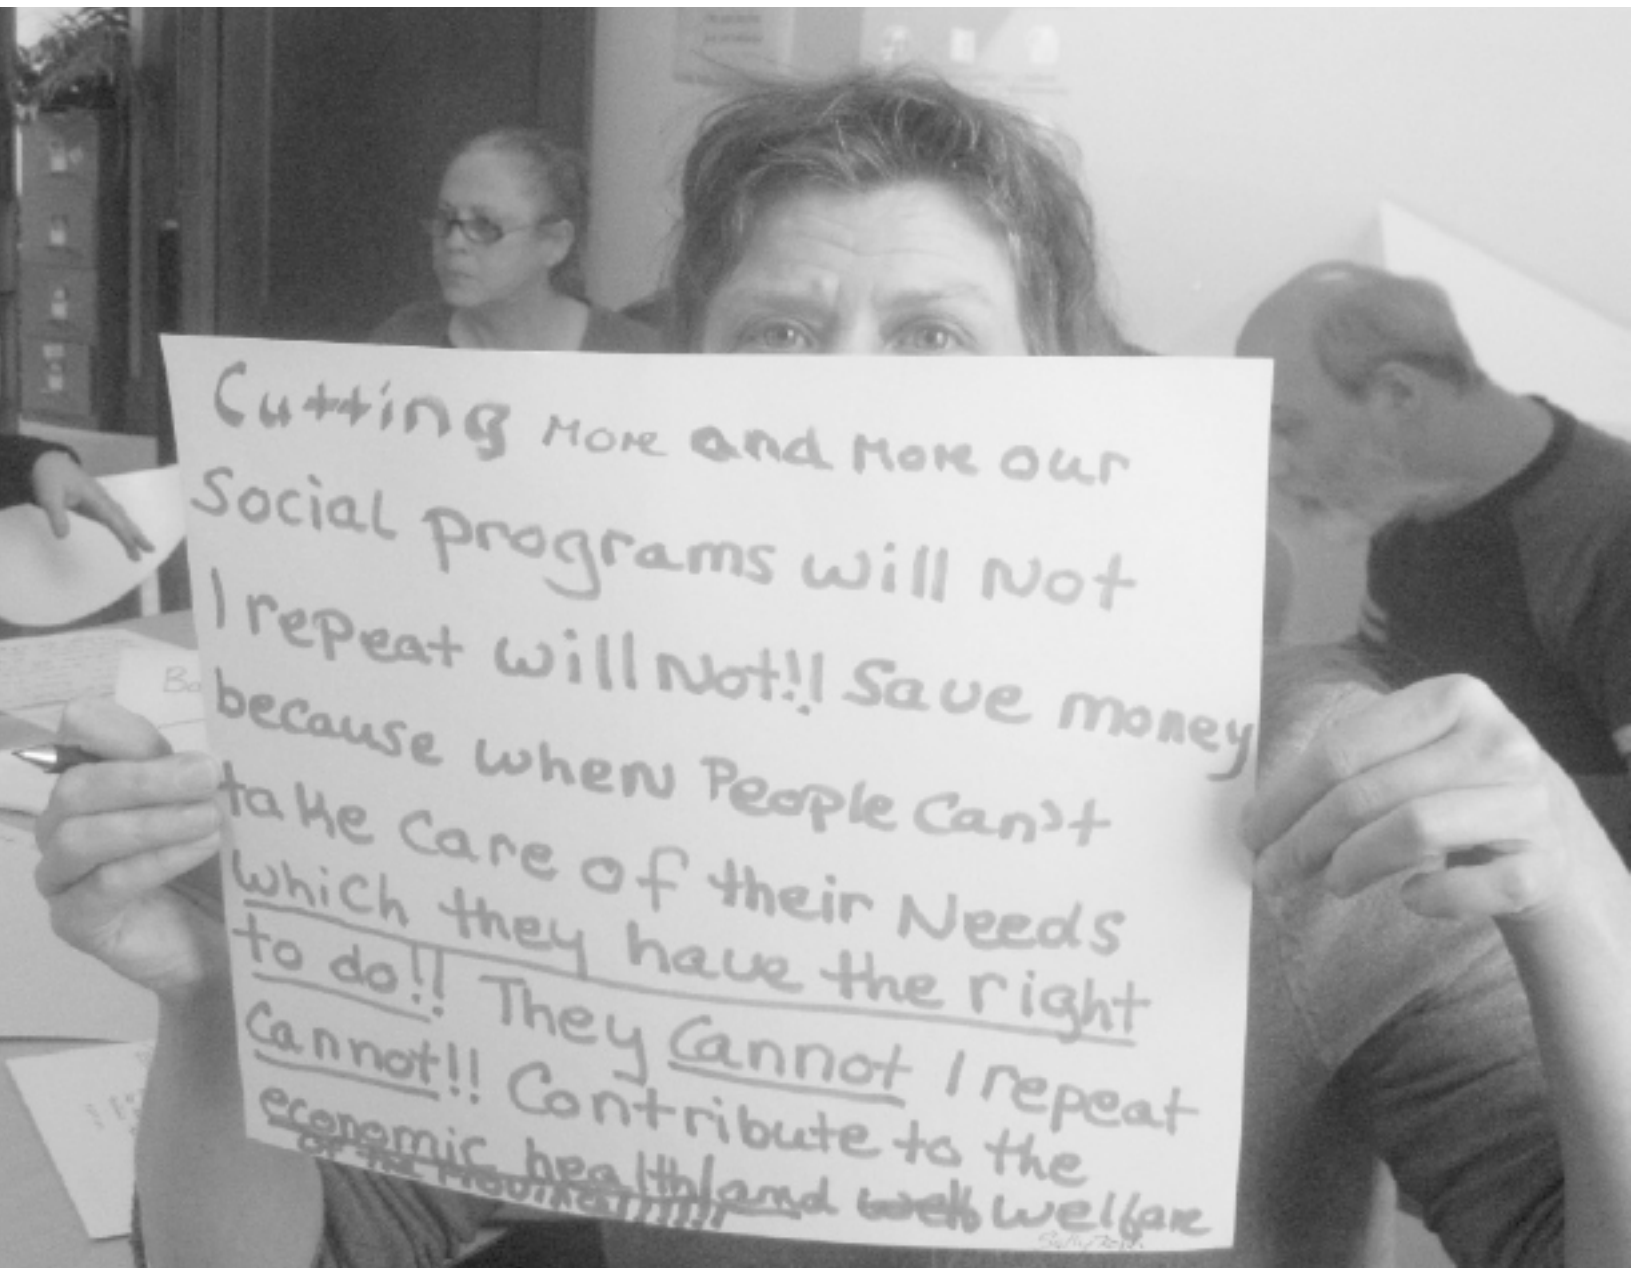 Cutting more and more our
Social programs will Not
I repeat will Not!! Save money
because when People Can't
take Care of their Needs
which they have the right
to do!! They Cannot I repeat
Cannot!! Contribute to the
economic health and welfare
of the Province!!!!!!
Ba